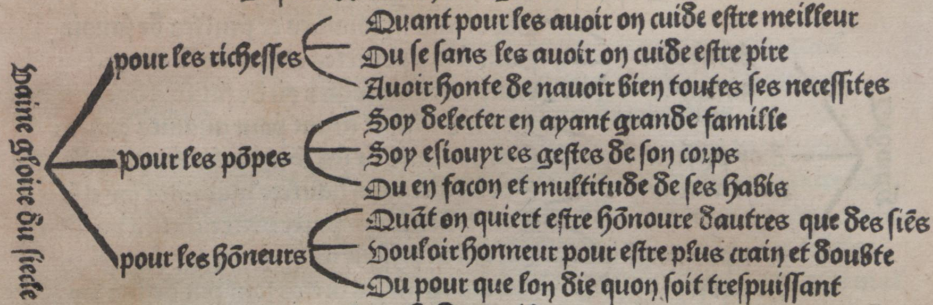 Vaine gloire du siecle
pour les richesses
Quant pour les auoir on cuide estre meilleur
Ou se sans les auoir on cuide estre pire
Auoir honte de nauoir bien toutes ses necessites
Pour les põpes
Soy delecter en ayant grande famille
Soy esiouyr es gestes de son corps
Ou en facon et multitude de ses habis
pour les hõneurs
Quãt on quiert estre hõnoure dautres que des siẽs
Vouloir honneur pour estre plus crain et doubte
Ou pour que lon die quon soit trespuissant